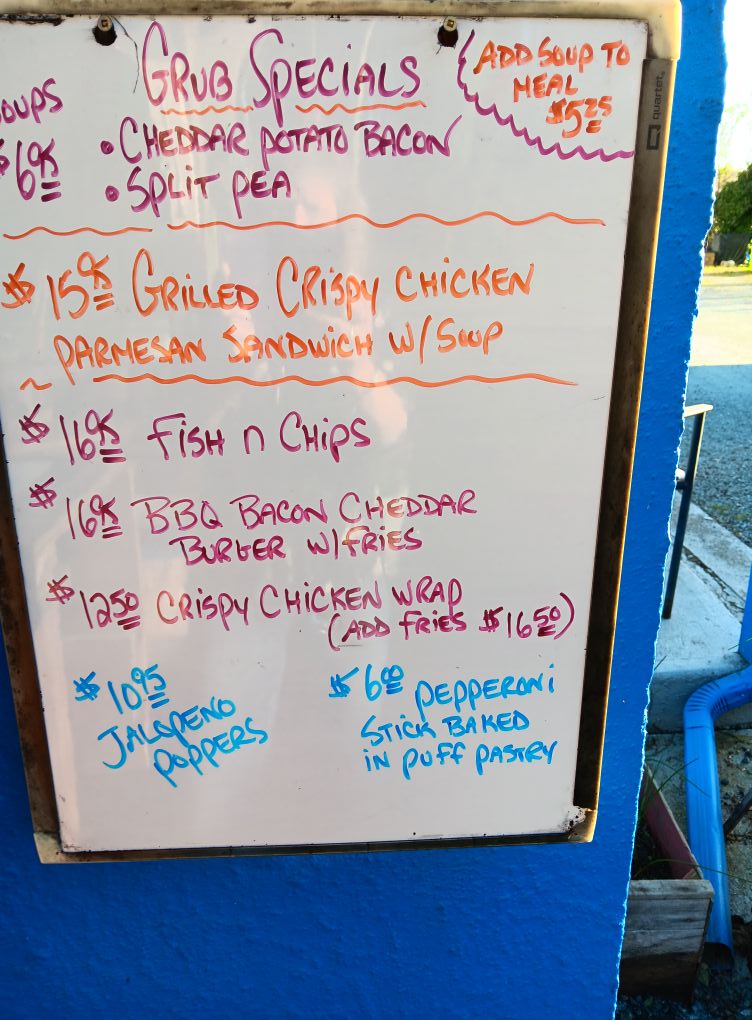 GRUB SPECIALS
ADD SOUP TO
MEAL
$5.25
OUPS
$6.95
• CHEDDAR POTATO BACON
• SPLIT PEA
$15.95 GRILLED CRISPY CHICKEN
PARMESAN SANDWICH W/SOUP
$16.95 FISH n CHIPS
$16.95 BBQ BACON CHEDDAR
BURGER W/FRIES
$12.50 CRISPY CHICKEN WRAP
(ADD FRIES $16.50)
$10.95
JALOPENO
POPPERS
$6.00 PEPPERONI
STICK BAKED
IN PUFF PASTRY
quartet